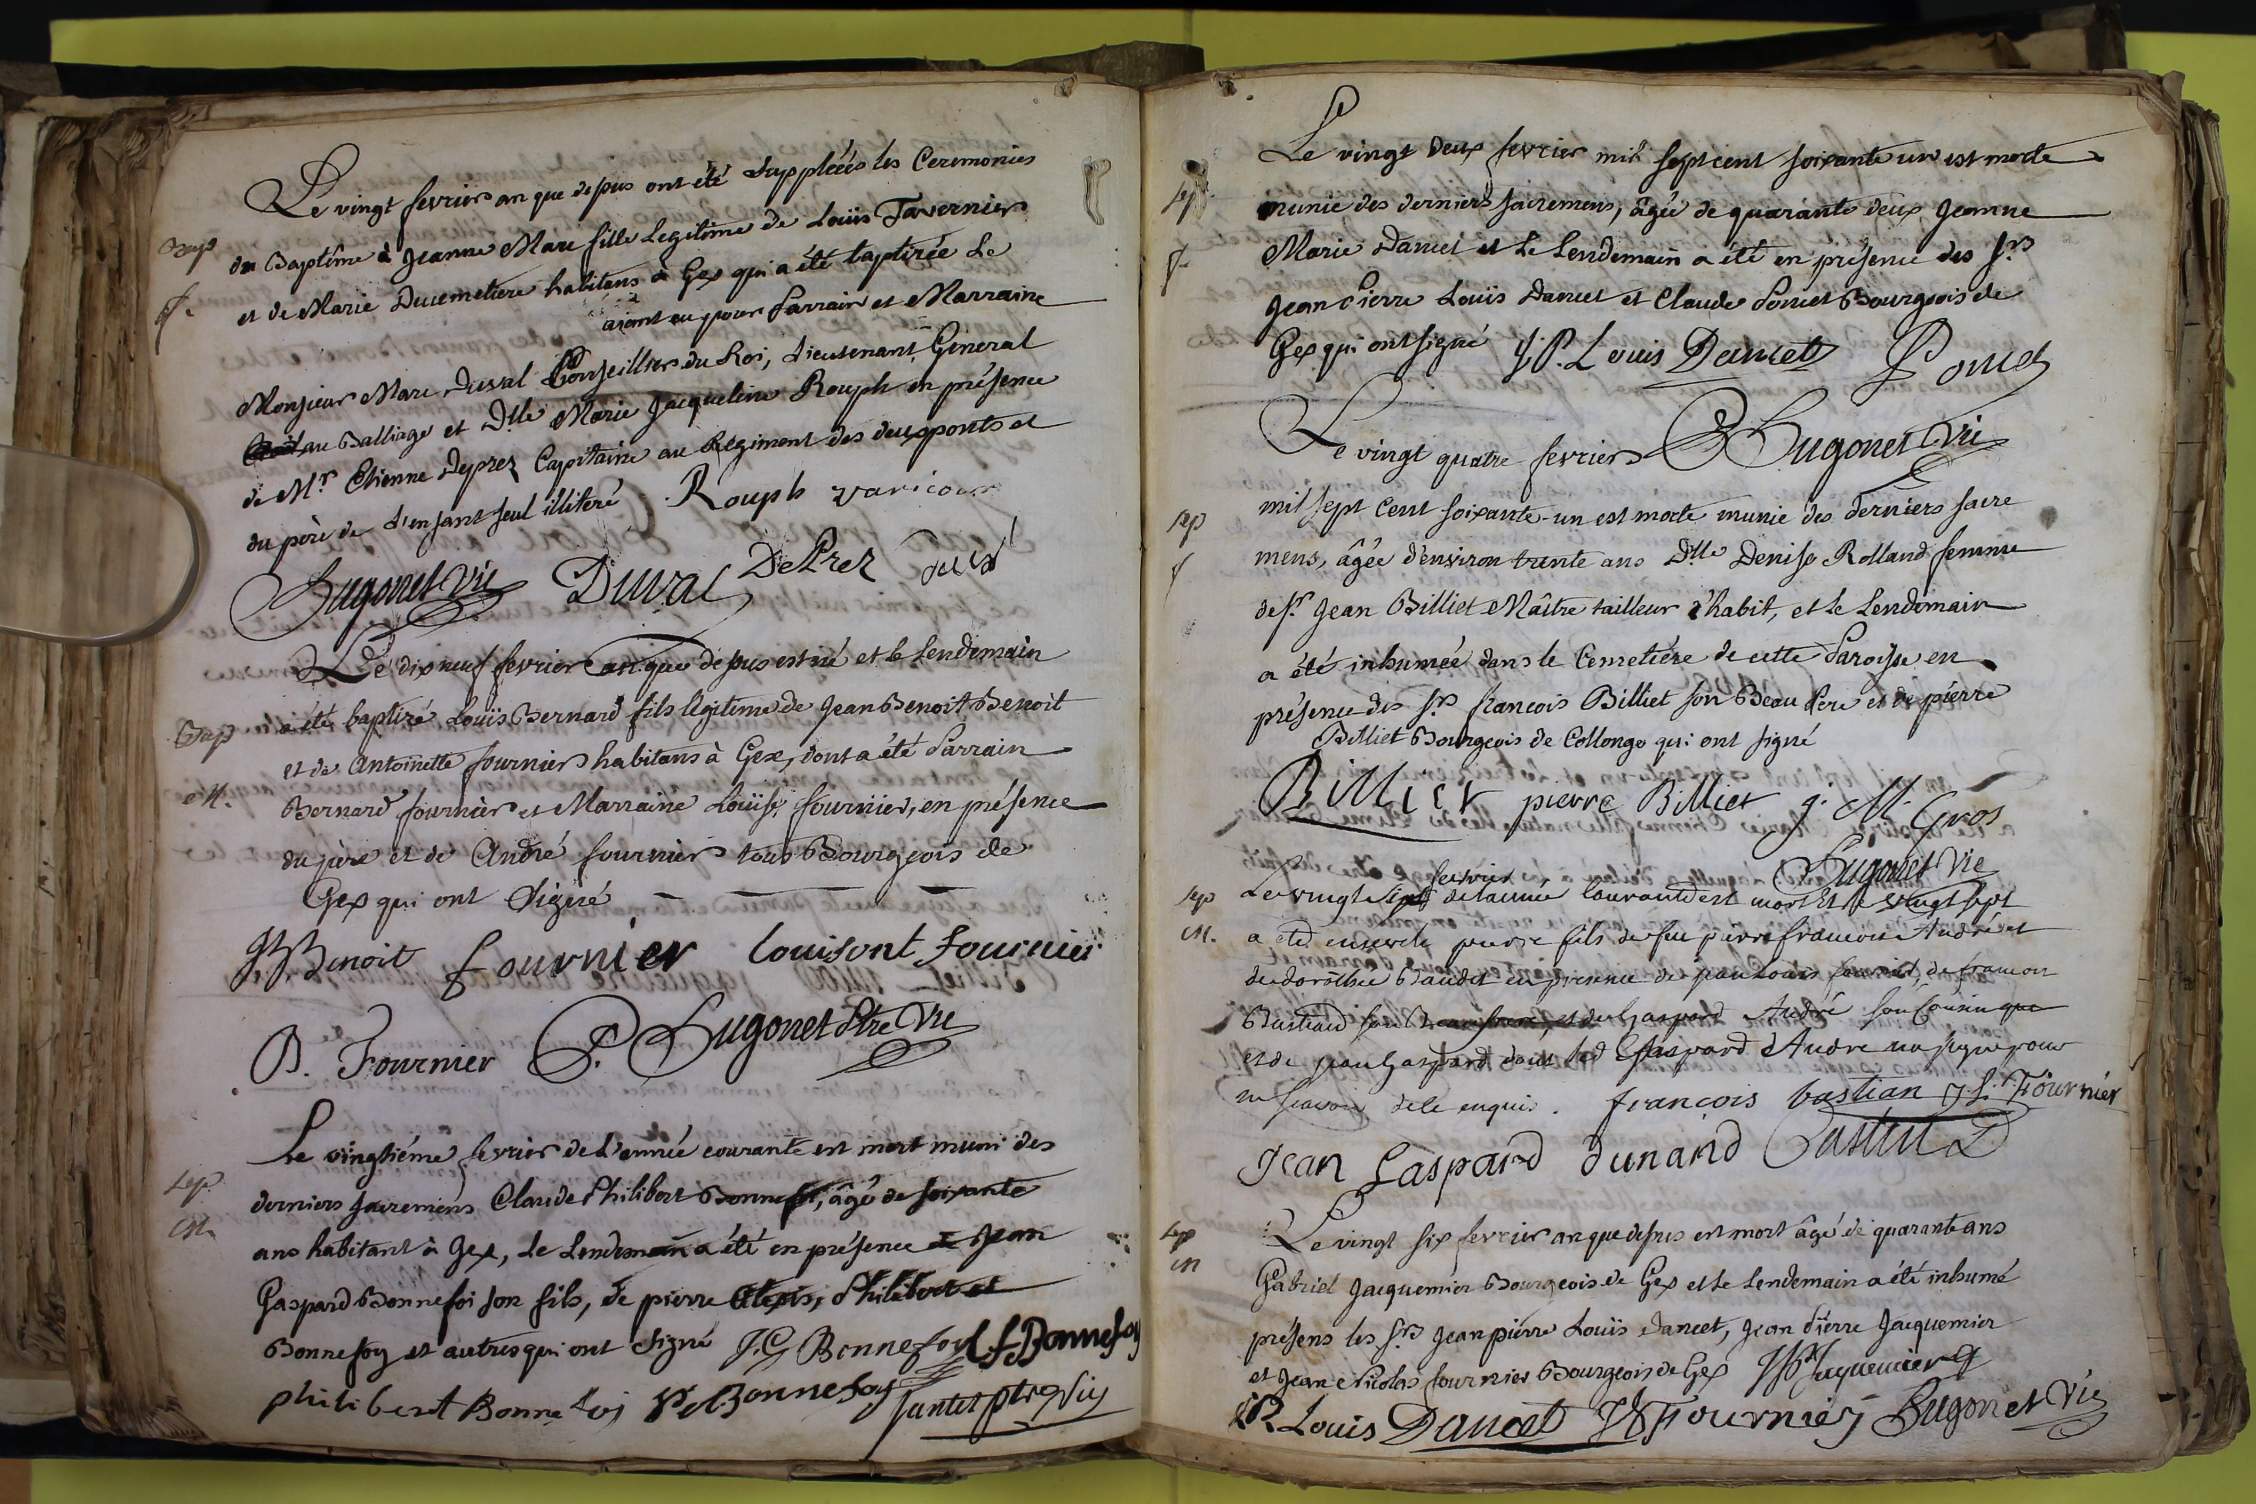 Le vingt fevrier an que depus ont été Suppléées les Ceremonies
Bap
du Baptême à Jeanne Marie fille Legitime de Loüis Tavernier
f.
et de Marie Ducemetiere habitans à Gex qui a été baptisée Le
aiant eu pour Parrain et Marraine
Monsieur Marc Duval Conseiller du Roi, Lieutenant General
au Balliage et Dlle Marie Jacqueline Rouph en présence
de Mr Etienne Deprez Capitaine au Regiment des deuxponts et
du père de L'enfant seul illiteré Rouph varicour
Hugonet Vic Duval DePrez
Le dixneuf fevrier an que depus est né et le Lendemain
Bap
a été baptisé Loüis Bernard fils legitime de Jean Benoit Benoit
et de Antoinette fournier habitans à Gex, dont a été Parrain
M.
Bernard fournier et Marraine Loüise fournier, en présence
du père et de André fournier tous Bourgeois de
Gex qui ont Signé
JB Benoit fournier louisont fournier
B. Fournier P. Hugonet Ptre Vic
Le vingtiéme fevrier de L'année courante est mort muni des
Sep.
derniers sacremens Claude Philibert Bonnefoi, âgé de soixante
M.
ans habitant à Gex, Le Lendemain a été en présence de Jean
Gaspard Bonnefoi son fils, de pierre Alexis, Philibert et
Bonnefoy et autres qui ont Signé J.G Bonnefoy C.f. Bonnefoy
philibert Bonnefoi P.A. Bonnefoy Pantet ptre Vic
Le vingt deux fevrier mil sept cent soixante un est morte
Sep.
munie des derniers sacremens, âgée de quarante deux Jeanne
f.
Marie Dancet et Le Lendemain a été en présence des Srs
Jean Pierre Loüis Dancet et Claude Poncet Bourgeois de
Gex qui ont signé J.P. Louis Dancet Poncet
Le vingt quatre fevrier P Hugonet Vic
Sep
mil sept cent soixante-un est morte munie des derniers sacre
f
mens, âgée d'environ trente ans Dlle Denise Rolland femme
de Sr Jean Billiet Maître tailleur d'habit, et Le Lendemain
a été inhumée dans le Cemetiére de cette Paroisse en
présence des Srs françois Billiet son Beau Pere et de pierre
Billiet Bourgeois de Collonge qui ont signé
Billiet pierre Billiet J. M. Gros
Hugonet Vic
fevrier
Sep
Le vingt Sept de lannée Courante est mort Et le vingt sept
M.
a eté enseveli pierre fils de feu pierre francois André et
de dorothée Baudet en presence de jean Louis fournier, de francois
Bastian son Beaufrere, et de Gaspard André son Cousin que
et de jean Gaspard dont led Gaspard André na signé pour
ne scavoir dele enquis. françois bastian J.L. Fournier
Jean Gaspard dunand
Sep
Le vingt six fevrier an que depus est mort âgé de quarante ans
M
Gabriel Jacquemier Bourgeois de Gex et Le Lendemain a été inhumé
présens les Srs Jean pierre Loüis Dancet, Jean Pierre Jacquemier
et Jean Nicolas fournier Bourgeois de Gex JP Jacquemier
JP. Louis Dancet JN Fournier Hugonet Vic